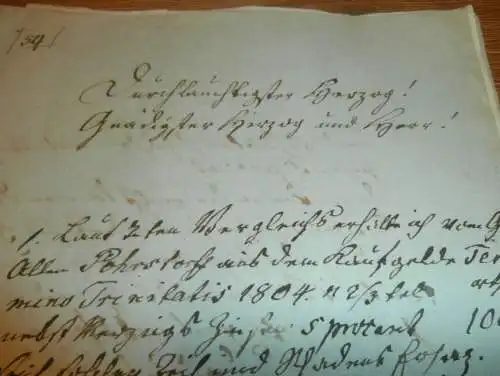 /54/
Durchlauchtigster Herzog!
Gnädigster Herzog und Herr!
1. Laut 2ten Vergleichs erhalte ich vom G
Allen Pohrstorff aus dem Kaufgelde Ter
mino Trinitatis 1804. n 2/3 tel
nebst Verzugs Zinsen 5 procent 10
Zeit und Schadens